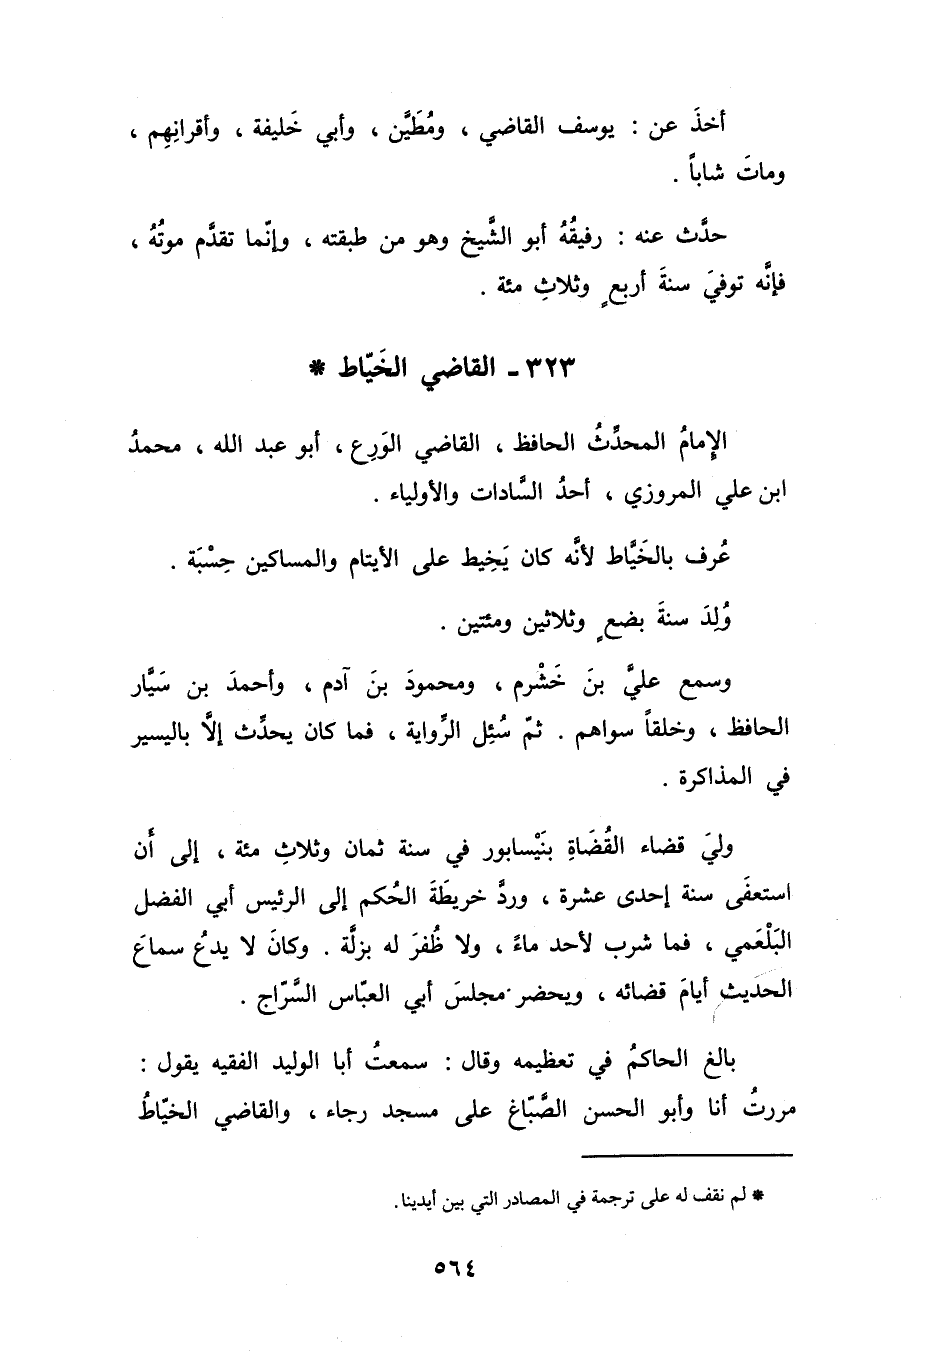 أخذَ عن : يوسف القاضي ، ومُطَيَّن ، وأبي خَليفة ، وأقرانِهِم ،
وماتَ شاباً .
حدَّث عنه : رفيقُهُ أبو الشَّيخ وهو من طبقته ، وإنّما تقدَّم موتُهُ ،
فإنَّه توفيَ سنةَ أربعٍ وثلاثِ مئة .
٣٢٣ - القاضي الخَيّاط *
الإِمامُ المحدِّثُ الحافظ ، القاضي الوَرِع ، أبو عبد الله ، محمدُ
ابن علي المروزي ، أحدُ السَّادات والأولياء .
عُرف بالخَيَّاط لأنَّه كان يَخِيط على الأيتام والمساكين حِسْبَة .
وُلِدَ سنةَ بضعٍ وثلاثين ومئتين .
وسمع عليَّ بنَ خَشْرم ، ومحمودَ بنَ آدم ، وأحمدَ بن سَيَّار
الحافظ ، وخلقاً سواهم . ثمّ سُئِل الرِّواية ، فما كان يحدِّث إلَّا باليسير
في المذاكرة .
وليَ قضاء القُضَاةِ بنَيْسابور في سنة ثمان وثلاثِ مئة ، إلى أَن
استعفَى سنة إحدى عشرة ، وردَّ خريطَةَ الحُكم إلى الرئيس أبي الفضل
البَلْعَمي ، فما شرب لأحد ماءً ، ولا ظُفرَ له بزلَّة . وكانَ لا يدعُ سماعَ
الحديث أيامَ قضائه ، ويحضر مجلسَ أبي العبّاس السَّرّاج .
بالغ الحاكمُ في تعظيمه وقال : سمعتُ أبا الوليد الفقيه يقول :
مررتُ أنا وأبو الحسن الصَّبّاغ على مسجد رجاء ، والقاضي الخيّاطُ
* لم نقف له على ترجمة في المصادر التي بين أيدينا.
٥٦٤